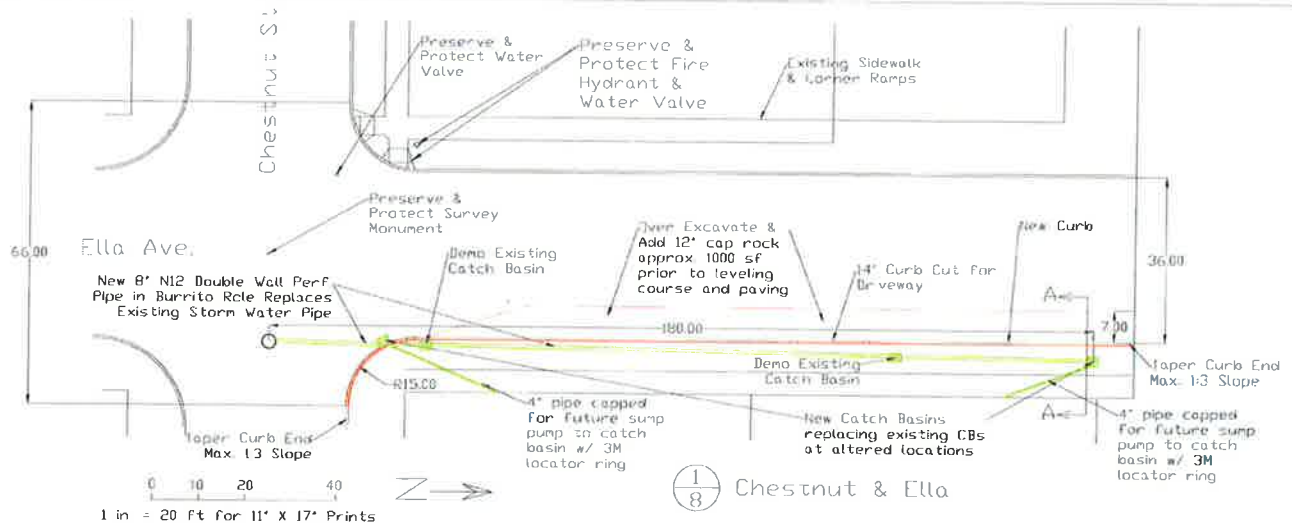 Chestnut S
Preserve &
Protect Water
Valve
Preserve &
Protect Fire
Hydrant &
Water Valve
Existing Sidewalk
& Corner Ramps
66.00
Ella Ave.
Preserve &
Protect Survey
Monument
36.00
New 8" N12 Double Wall Perf
Pipe in Burrito Rcle Replaces
Existing Storm Water Pipe
Demo Existing
Catch Basin
Over Excavate &
Add 12" cap rock
approx 1000 sf
prior to leveling
course and paving
New Curb
14" Curb Cut for
Driveway
A
180.00
7.00
R15.00
Demo Existing
Catch Basin
Taper Curb End
Max. 1:3 Slope
Taper Curb End
Max. 1:3 Slope
4" pipe capped
for future sump
pump to catch
basin w/ 3M
locator ring
New Catch Basins
replacing existing CBs
at altered locations
A
4" pipe capped
for future sump
pump to catch
basin w/ 3M
locator ring
0 10 20 40
1 in = 20 ft for 11" X 17" Prints
Z
1
8
Chestnut & Ella